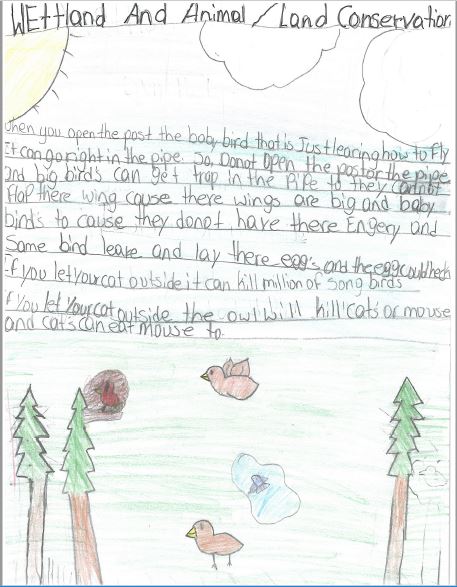 WEttland And Animal / Land Conservation
When you open the post the baby bird that is Just learing how to fly
It can go right in the pipe. So, Donot Open the post or the pipe
and big birds can get trap in the PiPe to they cannot
flap there wing cause there wings are big and baby
birds to cause they donot have there Engery and
Some bird leave and lay there egg's and the egg could hech
If you let your cat outside it can kill million of song birds
if You let Your cat outside the owl will kill cats or mouse
and cat's can eat mouse to.